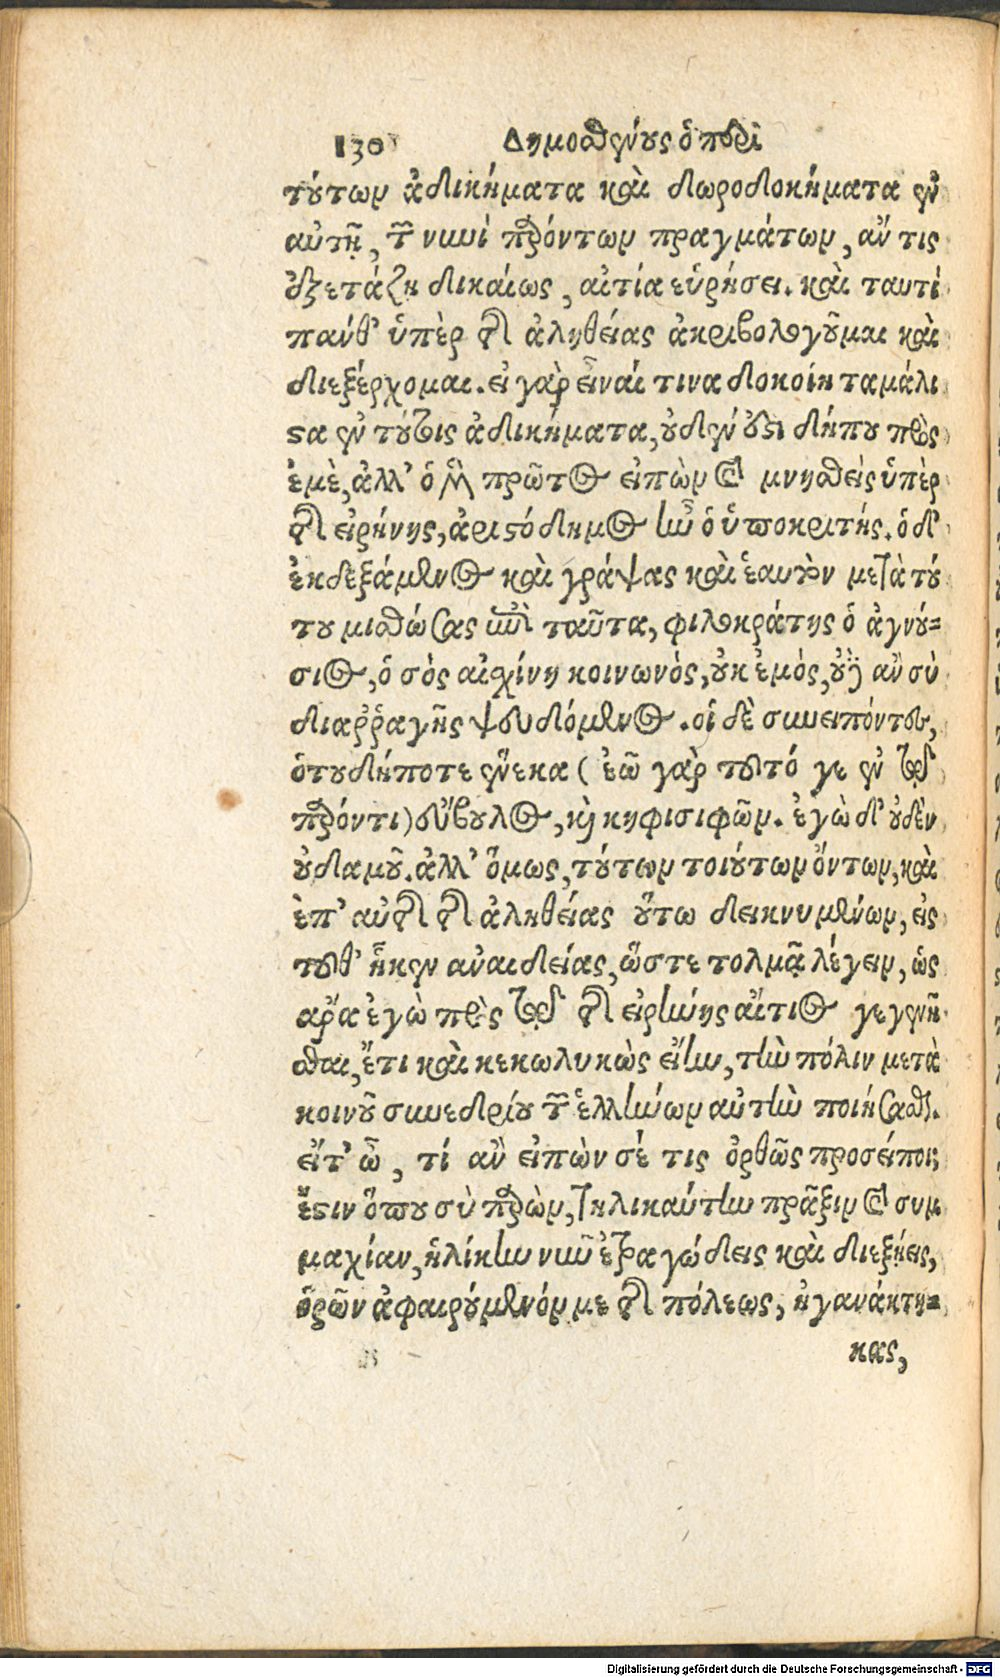 130 Δημοσθένους ὁ περὶ
τούτων ἀδικήματα καὶ δωροδοκήματα ἐν
αὐτῇ, τῶν νυνὶ παρόντων πραγμάτων, ἄν τις
ἐξετάζῃ δικαίως, αἰτία εὑρήσει. καὶ ταυτὶ
πάνθ' ὑπὲρ τῆς ἀληθείας ἀκριβολογοῦμαι καὶ
διεξέρχομαι. εἰ γὰρ εἶναί τινα δοκοίη ταμάλι
στα ἐν τούτοις ἀδικήματα, οὐδέν ἐστι δήπου πρὸς
ἐμὲ, ἀλλ' ὁ μὲν πρῶτος εἰπὼν καὶ μνησθεὶς ὑπὲρ
τῆς εἰρήνης, ἀριστόδημος ἦν ὁ ὑποκριτής. ὁ δ'
ἐκδεξάμενος καὶ γράψας καὶ ἑαυτὸν μετὰ τού
του μισθώσας ἐπὶ ταῦτα, φιλοκράτης ὁ ἁγνού=
σιος, ὁ σὸς αἰσχίνη κοινωνὸς, οὐκ ἐμὸς, οὐδ' ἂν σὺ
διαῤῥαγῇς ψευδόμενος. οἱ δὲ συνειπόντες,
ὁτουδήποτε ἕνεκα (ἐῶ γὰρ τοῦτό γε ἐν τῷ
παρόντι) εὔβουλος, καὶ κηφισιφῶν. ἐγὼ δ' οὐδὲν
οὐδαμοῦ. ἀλλ' ὅμως, τούτων τοιούτων ὄντων, καὶ
ἐπ' αὐτῆς τῆς ἀληθείας οὕτω δεικνυμένων, εἰς
τοῦθ' ἧκεν ἀναιδείας, ὥστε τολμᾷ λέγειν, ὡς
ἄρα ἐγὼ πρὸς τῷ τῆς εἰρήνης αἴτιος γεγενῆ
σθαι, ἔτι καὶ κεκωλυκὼς εἴην, τὴν πόλιν μετὰ
κοινοῦ συνεδρίου τῶν ἑλλήνων αὐτὴν ποιήσασθαι.
εἶτ' ὦ, τί ἂν εἰπὼν σέ τις ὀρθῶς προσείποι;
ἔστιν ὅπου σὺ παρὼν, τηλικαύτην πρᾶξιν καὶ συμ
μαχίαν, ἡλίκην νῦν ἐτραγῴδεις καὶ διεξῄεις,
ὁρῶν ἀφαιρούμενόν με τῆς πόλεως, ἠγανάκτη=
κας,
Digitalisierung gefördert durch die Deutsche Forschungsgemeinschaft - DFG